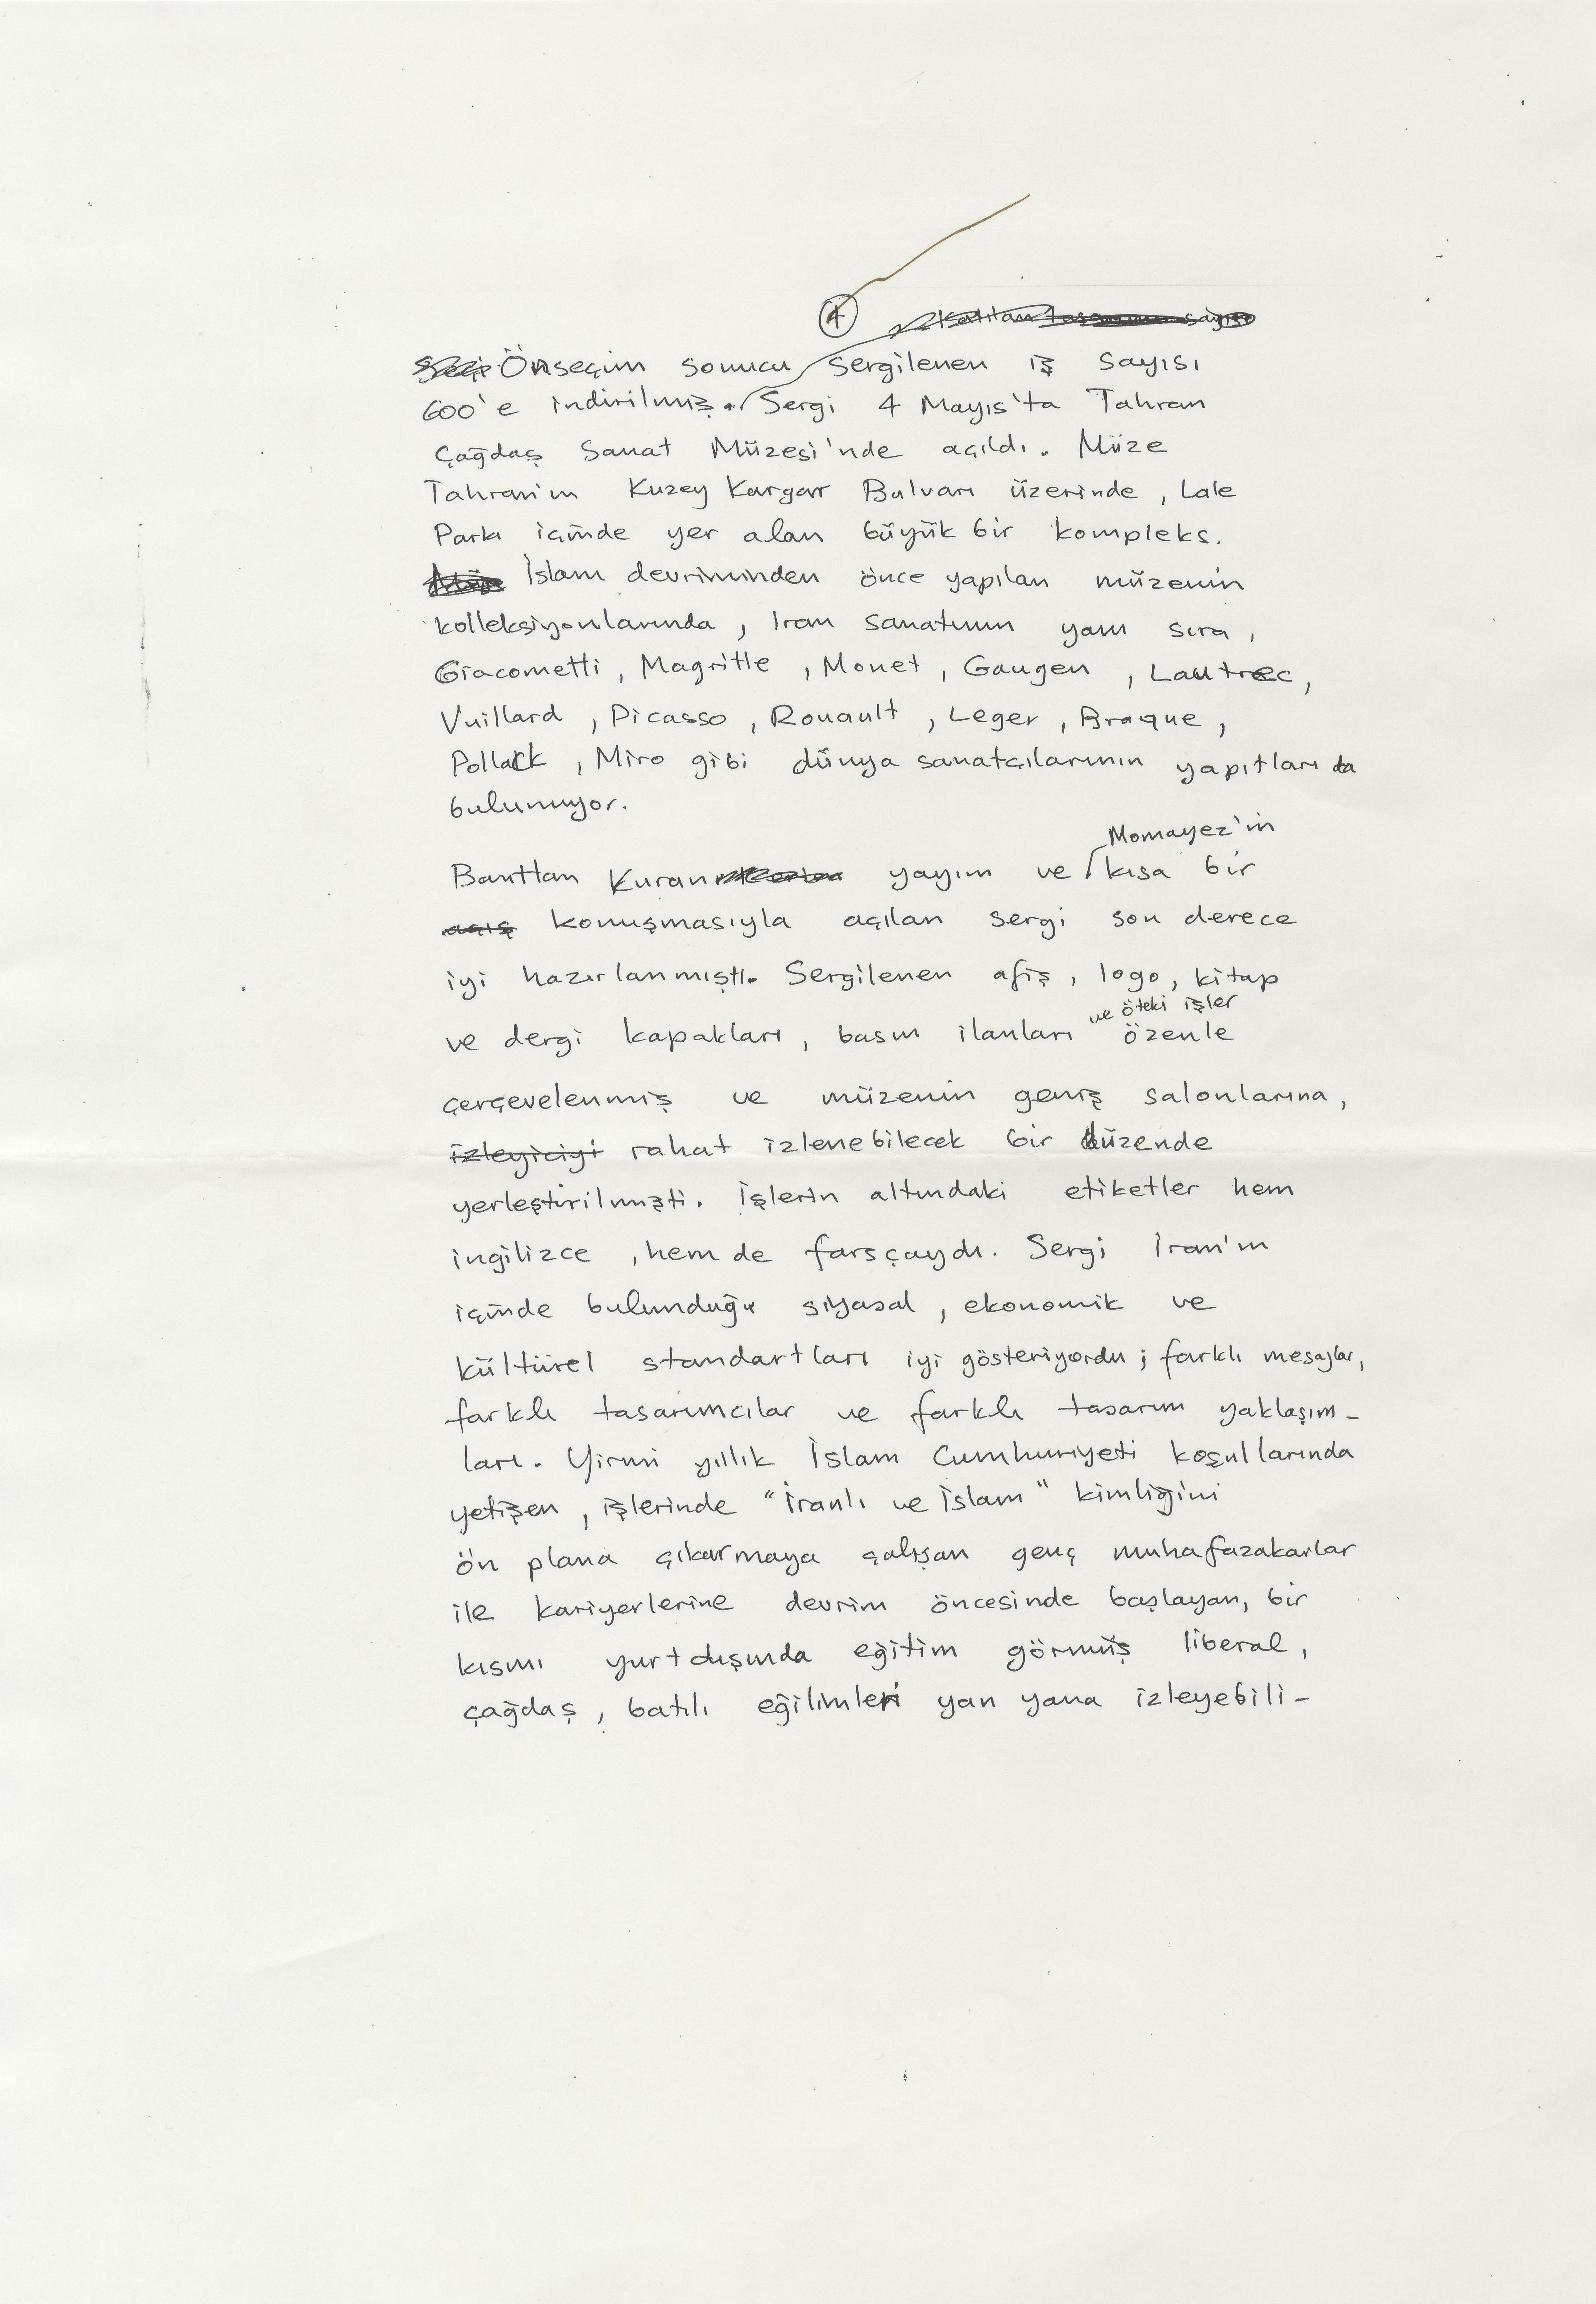 4 katılan tasarımcı sayısı
Seçi Önseçim sonucu sergilenen iş sayısı
600'e indirilmiş. Sergi 4 Mayıs'ta Tahran
Çağdaş Sanat Müzesi'nde açıldı. Müze
Tahran'ın Kuzey Kargar Bulvarı üzerinde, Lale
Parkı içinde yer alan büyük bir kompleks.
İslam devriminden önce yapılan müzenin
kolleksiyonlarında, İran sanatının yanı sıra,
Giacometti, Magritte, Monet, Gaugen, Lautrec,
Vuillard, Picasso, Rouault, Leger, Braque,
Pollack, Miro gibi dünya sanatçılarının yapıtları da
bulunuyor.
Momayez'in
Banttan Kuran yayını ve kısa bir
açış konuşmasıyla açılan sergi son derece
iyi hazırlanmıştı. Sergilenen afiş, logo, kitap
ve öteki işler
ve dergi kapakları, basın ilanları özenle
çerçevelenmiş ve müzenin geniş salonlarına,
izleyiciyi rahat izlenebilecek bir düzende
yerleştirilmişti. İşlerin altındaki etiketler hem
ingilizce, hem de farsçaydı. Sergi İran'ın
içinde bulunduğu siyasal, ekonomik ve
kültürel standartları iyi gösteriyordu; farklı mesajlar,
farklı tasarımcılar ve farklı tasarım yaklaşım-
ları. Yirmi yıllık İslam Cumhuriyeti koşullarında
yetişen, işlerinde "İranlı ve İslam" kimliğini
ön plana çıkarmaya çalışan genç muhafazakarlar
ile kariyerlerine devrim öncesinde başlayan, bir
kısmı yurtdışında eğitim görmüş liberal,
çağdaş, batılı eğilimleri yan yana izleyebili-